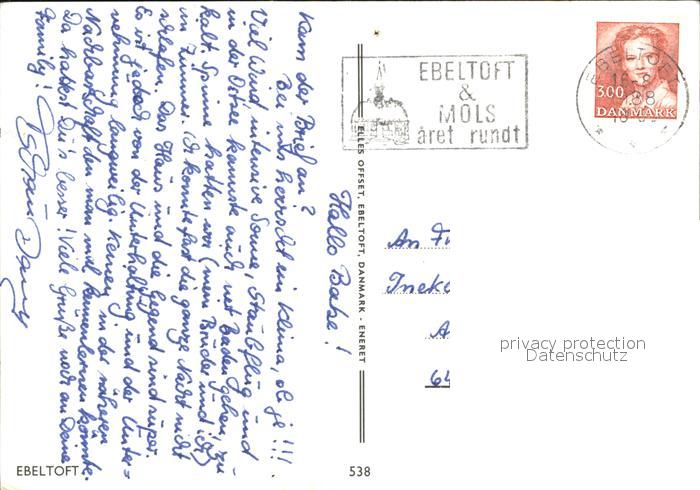 Hallo Babe!
Kam der Brief an?
Bei uns herrscht ein Klima, oh je!!!
Viel Wind, intensive Sonne, Staubflug und
in der Ostsee kannste auch net Baden gehen, zu
kalt. Spinne hatten wir (mein Bruder und ich)
im Zimmer. Ich konnte fast die ganze Nacht nicht
schlafen. Das Haus und die Gegend sind super.
Es ist jedoch von der Unterhaltung und der Unter=
nehmung langweilig. Keiner in der näheren
Nachbarschaft den man mal kennenlernen könnte.
Da hattest Du's besser! Viele Grüße noch an Deine
Family!
EBELTOFT
538
ELLES OFFSET, EBELTOFT, DANMARK - ENERET
EBELTOFT
&
MOLS
året rundt
EBELTOFT
16-8
88
3.00
DANMARK
An
privacy protection
Datenschutz